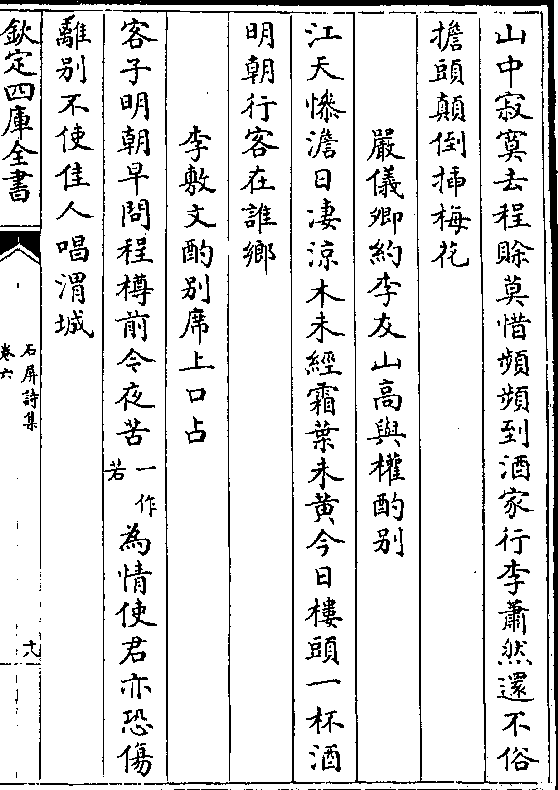 山中寂寞去程賖莫惜頻頻到酒家行李蕭然還不俗
擔頭顛倒揷梅花
嚴儀卿約李友山高與權酌别
江天慘澹日凄涼木未經霜葉未黄今日樓頭一杯酒
明朝行客在誰鄉
李敷文酌别席上口占
客子明朝早問程樽前令夜苦一作若為情使君亦恐傷
離别不使佳人唱渭城
欽定四庫全書
石屏詩集
卷六
十九